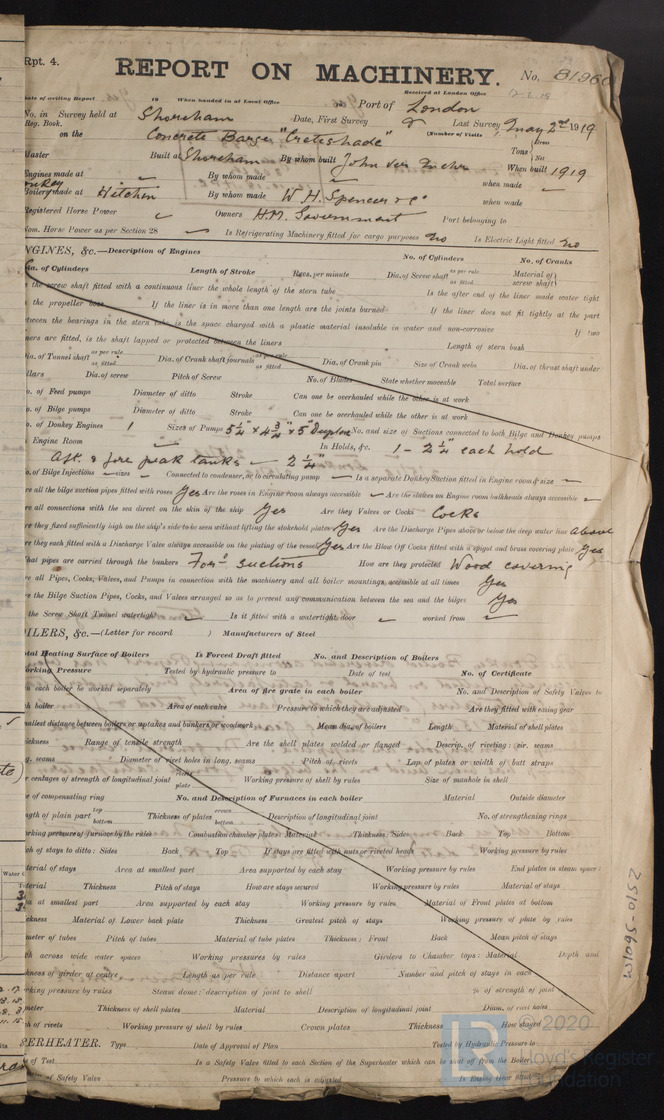 Rpt. 4.
REPORT ON MACHINERY. No. 8196
Date of writing Report 19 When handed in at Local Office 19 Port of London
Received at London Office
No. in Survey held at Shoreham Date, First Survey Last Survey, May 2nd 1919
Reg. Book. (Number of Visits
on the Concrete Barge "Creteshade" Tons Gross Net
Master Built at Shoreham By whom built John ver Mehr When built 1919
Engines made at By whom made when made
Donkey Boilers made at Hitchin By whom made W. H. Spencer & Co when made
Registered Horse Power Owners H.M. Government Port belonging to
Nom. Horse Power as per Section 28 Is Refrigerating Machinery fitted for cargo purposes No Is Electric Light fitted No
ENGINES, &c.—Description of Engines No. of Cylinders No. of Cranks
Dia. of Cylinders Length of Stroke Revs. per minute Dia. of Screw shaft as per rule as fitted Material of screw shaft
the screw shaft fitted with a continuous liner the whole length of the stern tube Is the after end of the liner made water tight
the propeller boss If the liner is in more than one length are the joints burned If the liner does not fit tightly at the part
between the bearings in the stern tube, is the space charged with a plastic material insoluble in water and non-corrosive If two
liners are fitted, is the shaft lapped or protected between the liners Length of stern bush
Dia. of Tunnel shaft as per rule as fitted Dia. of Crank shaft journals as per rule as fitted Dia. of Crank pin Size of Crank webs Dia. of thrust shaft under
collars Dia. of screw Pitch of Screw No. of Blades State whether moveable Total surface
No. of Feed pumps Diameter of ditto Stroke Can one be overhauled while the other is at work
No. of Bilge pumps Diameter of ditto Stroke Can one be overhauled while the other is at work
No. of Donkey Engines 1 Sizes of Pumps 5¼" x 4¾" x 5" Duplex No. and size of Suctions connected to both Bilge and Donkey pumps
Engine Room In Holds, &c. 1 - 2¼" each hold
Aft & fore peak tanks — 2¼"
No. of Bilge Injections sizes Connected to condenser, or to circulating pump Is a separate Donkey Suction fitted in Engine room & size
are all the bilge suction pipes fitted with roses Yes Are the roses in Engine room always accessible Are the sluices on Engine room bulkheads always accessible
are all connections with the sea direct on the skin of the ship Yes Are they Valves or Cocks Cocks
are they fixed sufficiently high on the ship's side to be seen without lifting the stokehold plates Yes Are the Discharge Pipes above or below the deep water line above
are they each fitted with a Discharge Valve always accessible on the plating of the vessel Yes Are the Blow Off Cocks fitted with a spigot and brass covering plate Yes
What pipes are carried through the bunkers For'd suctions How are they protected Wood covering
are all Pipes, Cocks, Valves, and Pumps in connection with the machinery and all boiler mountings accessible at all times Yes
are the Bilge Suction Pipes, Cocks, and Valves arranged so as to prevent any communication between the sea and the bilges Yes
the Screw Shaft Tunnel watertight Is it fitted with a watertight door worked from
BOILERS, &c.—(Letter for record ) Manufacturers of Steel
Total Heating Surface of Boilers Is Forced Draft fitted No. and Description of Boilers
Working Pressure Tested by hydraulic pressure to Date of test No. of Certificate
can each boiler be worked separately Area of fire grate in each boiler No. and Description of Safety Valves to
each boiler Area of each valve Pressure to which they are adjusted Are they fitted with easing gear
smallest distance between boilers or uptakes and bunkers or woodwork Mean dia. of boilers Length Material of shell plates
thickness Range of tensile strength Are the shell plates welded or flanged Descrip. of riveting: cir. seams
long. seams Diameter of rivet holes in long. seams Pitch of rivets Lap of plates or width of butt straps
percentages of strength of longitudinal joint Working pressure of shell by rules Size of manhole in shell
size of compensating ring No. and Description of Furnaces in each boiler Material Outside diameter
length of plain part top bottom Thickness of plates crown bottom Description of longitudinal joint No. of strengthening rings
working pressure of furnace by the rules Combustion chamber plates: Material Thickness: Sides Back Top Bottom
pitch of stays to ditto: Sides Back Top If stays are fitted with nuts or riveted heads Working pressure by rules
material of stays Area at smallest part Area supported by each stay Working pressure by rules End plates in steam space:
Material Thickness Pitch of stays How are stays secured Working pressure by rules Material of stays
area at smallest part Area supported by each stay Working pressure by rules Material of Front plates at bottom
thickness Material of Lower back plate Thickness Greatest pitch of stays Working pressure of plate by rules
diameter of tubes Pitch of tubes Material of tube plates Thickness: Front Back Mean pitch of stays
pitch across wide water spaces Working pressures by rules Girders to Chamber tops: Material Depth and
thickness of girder at centre Length as per rule Distance apart Number and pitch of stays in each
working pressure by rules Steam dome: description of joint to shell % of strength of joint
diameter Thickness of shell plates Material Description of longitudinal joint Diam. of rivet holes
pitch of rivets Working pressure of shell by rules Crown plates Thickness How stayed
SUPERHEATER. Type Date of Approval of Plan Tested by Hydraulic Pressure to
Date of Test Is a Safety Valve fitted to each Section of the Superheater which can be shut off from the Boiler
Diameter of Safety Valve Pressure to which each is adjusted Is Easing Gear fitted
W1095-0152
© 2020
Lloyd's Register
Foundation